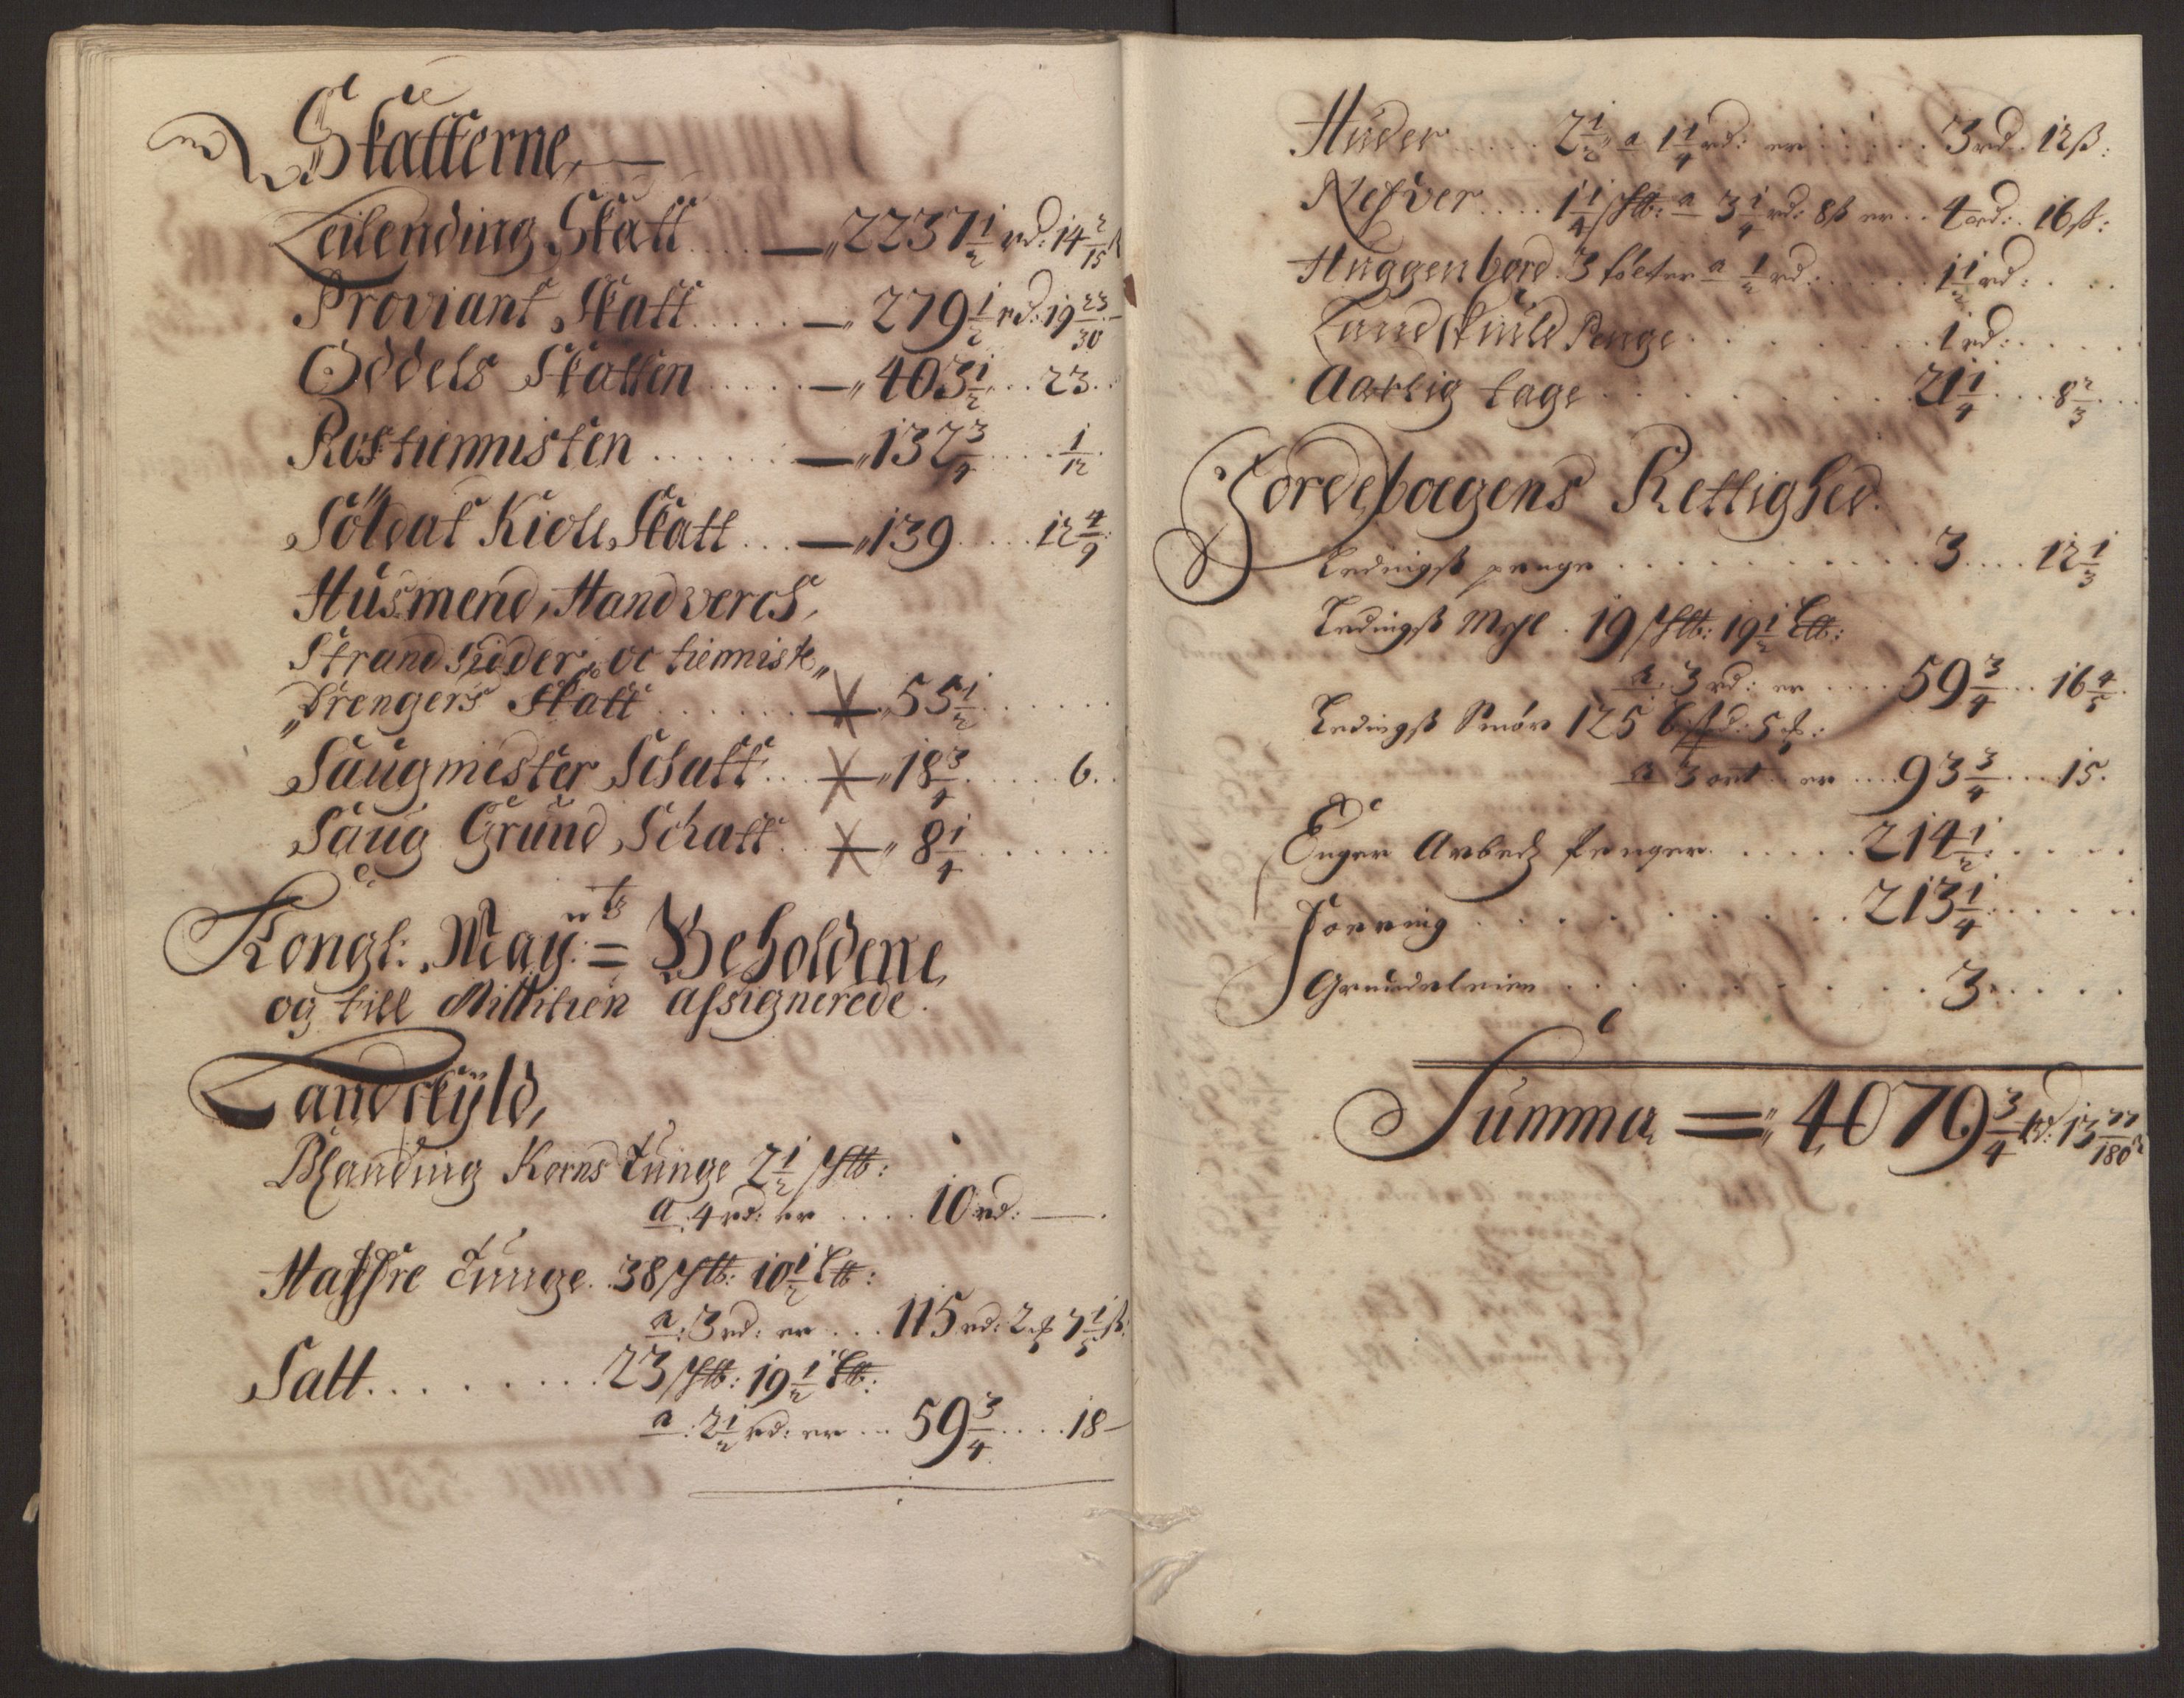 Skatterne,
Leilending Skatt .... — 2237 1/2 rd: 14 2/15 ß
Proviant Skatt ..... — 279 1/2 rd: 19 23/30
Oddels Skatten ..... — 403 1/2 ... 23.
Rostiennisten ...... — 137 3/4 .... 1/12
Soldat Kiole Skatt ... — 139 .... 12 4/9
Husmend, Handvercs,
Strand sidder, oc tienniste
Drengers Skatt ...... 55 1/2 ......
Saugmester Schatt ... 18 3/4 ..... 6.
Saug Grund Schatt .. 8 1/4 ......
Kongl: May:tz Beholdene,
og till Militien assignerede.
Landskyld,
Blanding Korns tunge 2 1/2 Sklb:
a 4 rd: er .... 10 rd: —.
Haffre tunge. 38 Sklb: 10 1/2 Lb:
a: 3 rd: er ... 115 rd: 2 ꝑ 7 1/5 ß:
Salt ......... 23 Sklb: 19 1/2 Lb:
a: 2 1/2 rd: er ... 59 3/4 .... 18 –
Huder ..... 2 1/2 a 1 1/4 rd: er ...... 3 rd. 12 ß:
Nefver .... 1 1/4 Sklb: a 3 1/4 rd: 8 ß er .. 4 rd: 16 ß:
Huggenbord. 3 tolter a 1/2 rd: ..... 1 1/2 rd: ...
Landskuld Penge ....... 1 rd: ....
Aarlig tage ......... 21 1/4 ... 8 2/3 ...
Jordebogens Rettighed.
Ledingß penge .......... 3 .... 12 1/3
Ledingß Mehl . 19 Sklb: 19 1/2 Lb:
a: 3 rd: er .... 59 3/4 ... 16 4/5.
Ledingß Smør 125 bpd: 5 ꝑ:
a 3 ort er ... 93 3/4 ... 15.
Enger Arbedz Penger ...... 214 1/2 .....
Foering .......... 213 1/4 .....
Grundeleien ......... 3 .....
Summa = 4079 3/4 rd: 13 77/180 ß